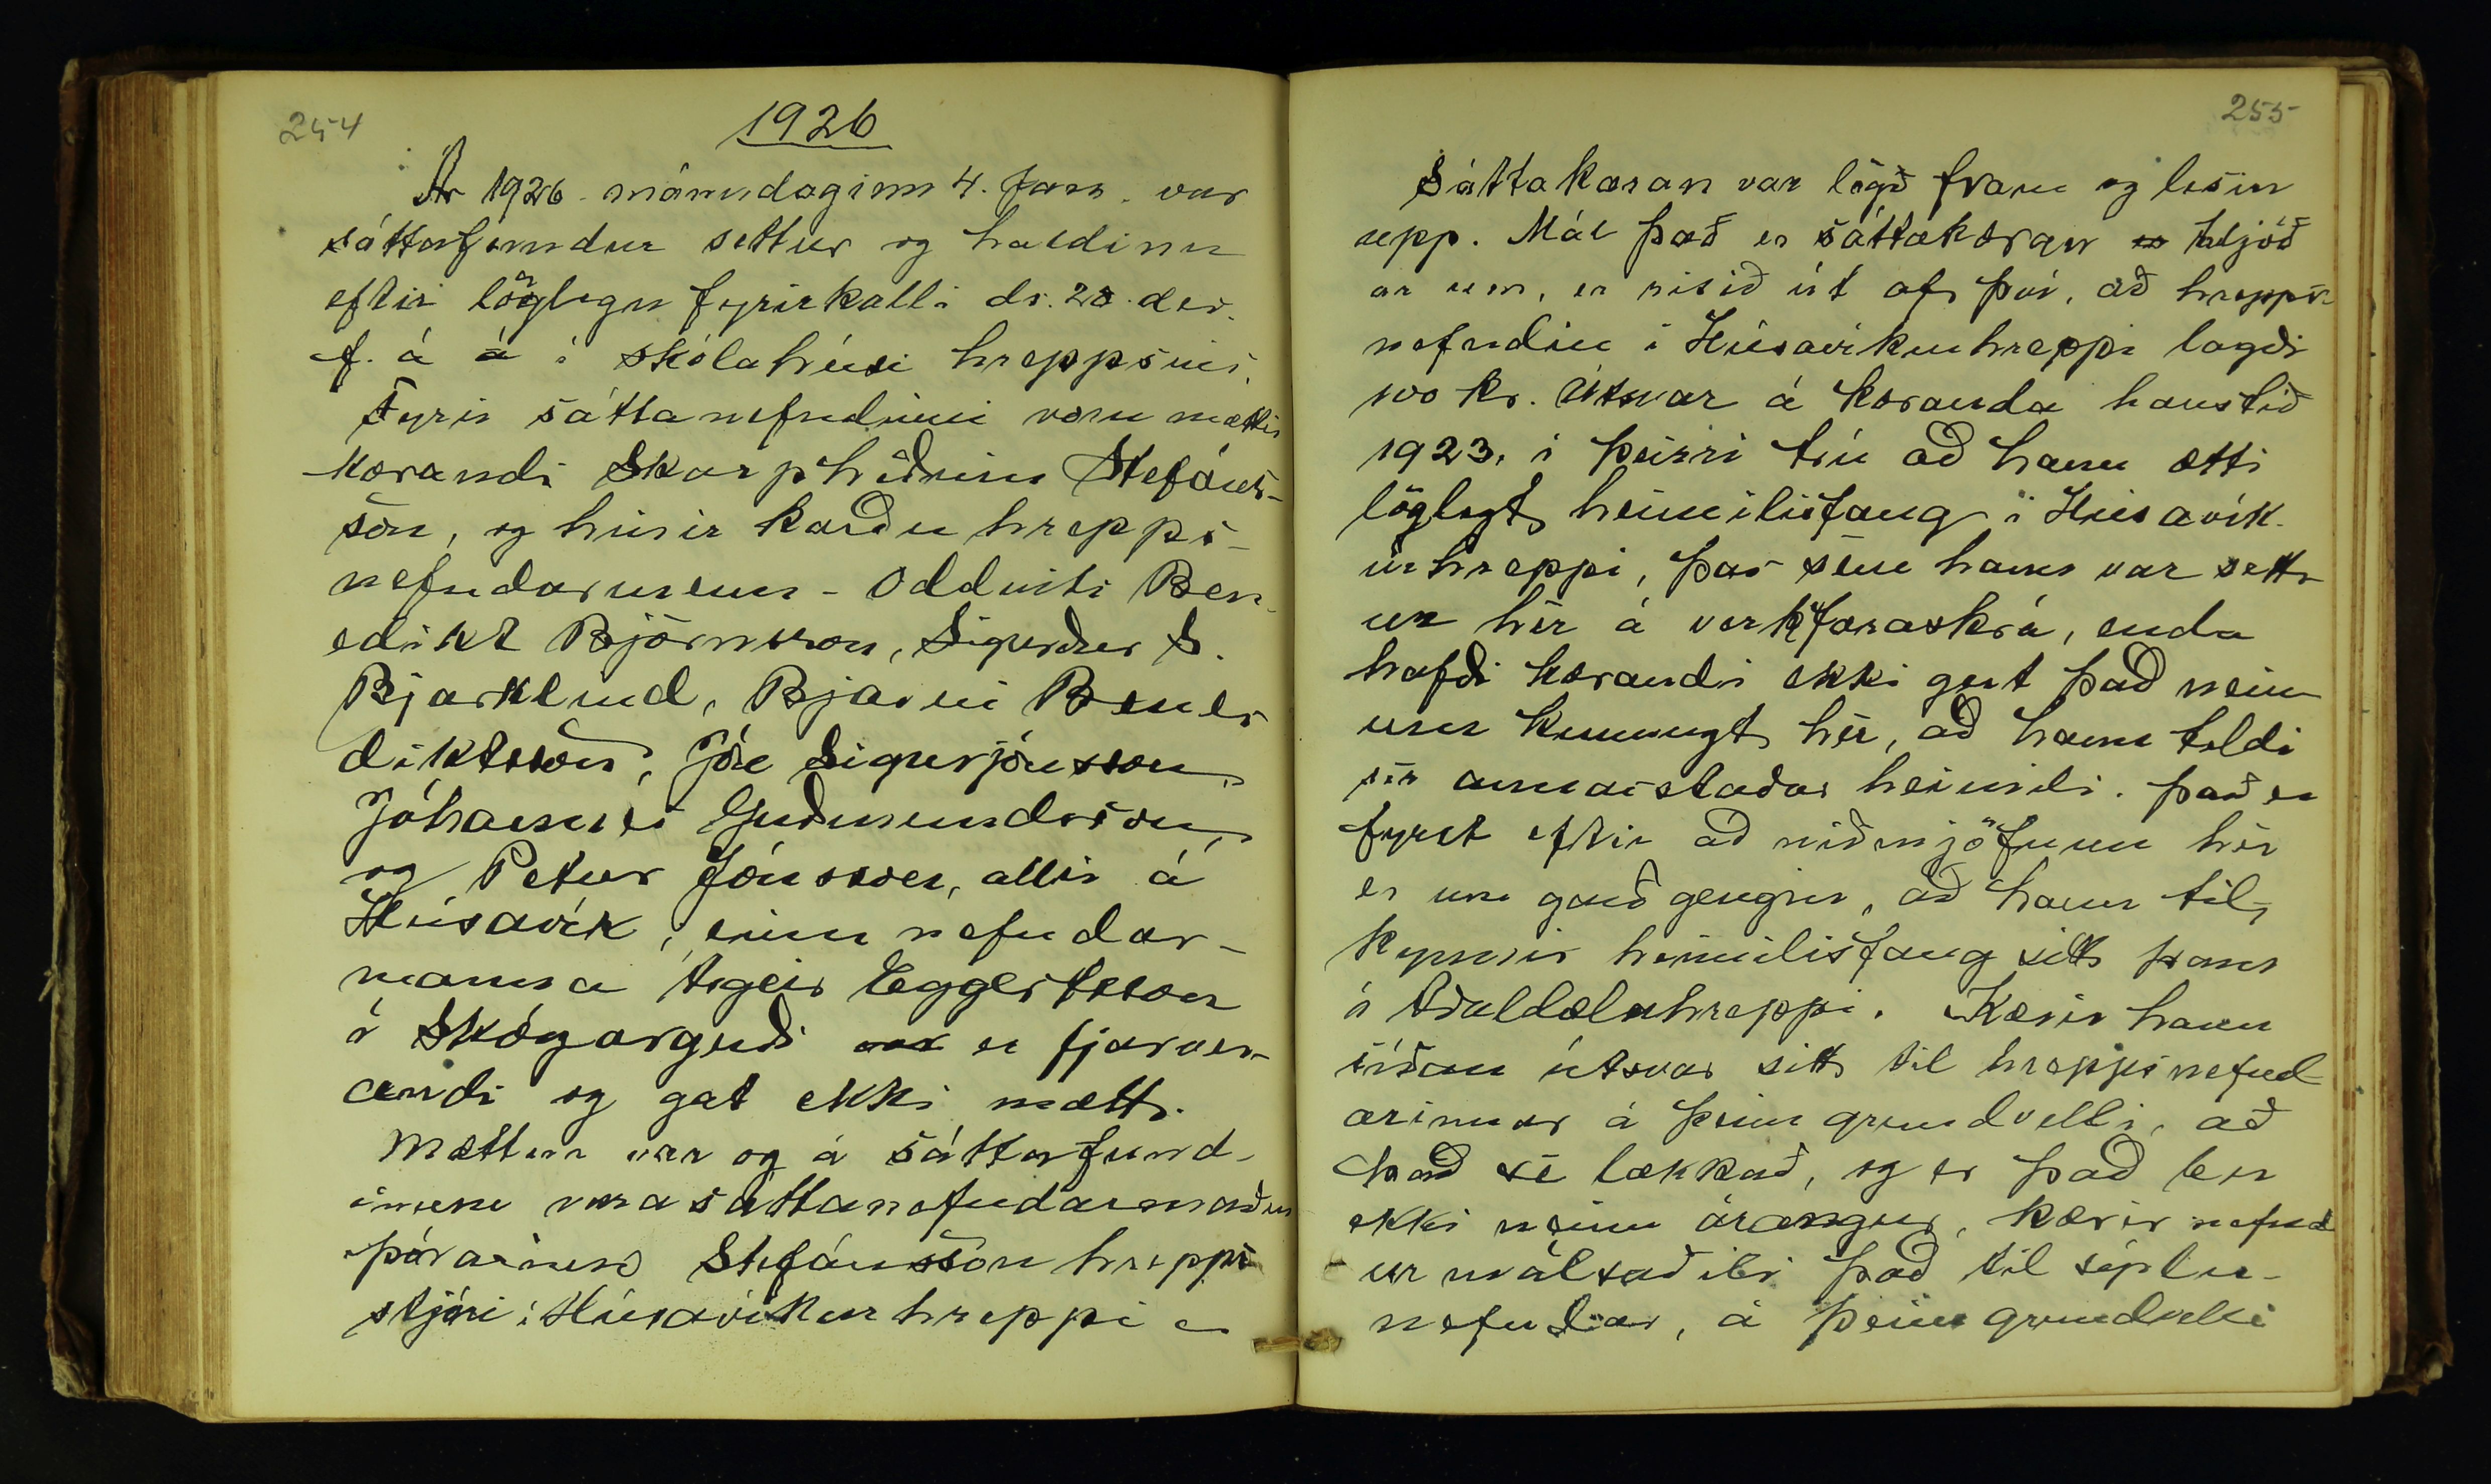 254
1926
Ár 1926. mánudaginn 4. Jan. var
sáttafundur settur og haldinn
eftir löglegu fyrirkalli ds. 28. des.
f. á á í skólahúsi hreppsins.
Fyrir sáttanefndinni voru mættir
Kærandi Skarphéðinn Stefáns-
son, og hinir kærðu hrepps-
nefndarmenn - Oddviti Ben-
edikt Björnsson, Sigurður S.
Bjarklind, Bjarni Bene-
diktsson, Jón Sigurjónsson,
Jóhannes Guðmundsson,
og Petur Jónsson, allir á
Húsavík, einn nefndar-
manna Ásgeir Eggertsson
í Skógargerði var er fjarver-
andi og gat ekki mætt.
Mættur var og á sáttafund-
inum varasáttanefndarmaður
Þórarinn Stefánsson hrepps
stjóri í Húsavíkurhreppi
255
Sáttakæran var lögð fram og lesin
upp. Mál það er sáttakæran er hljóð
ar um, er risið út af því, að hrepps-
nefndin í Húsavíkurhreppi lagði
100 kr. Útsvar á kæranda haustið
1923. í þeirri trú að hann ætti
löglegt heimilisfang í Húsavík-
urhreppi, þar sem hann var sett-
ur hér á verkfæraskrá, enda
hafði kærandi ekki gert það nein
um kunnugt hér, að hann teldi
sér annarstaðar heimili. það er
fyrst eftir að niðurjöfnun hér
er um garð gengin, að hann til-
kynnir heimilisfang sitt fram
í Aðaldælahreppi. Kærir hann
síðan útsvar sitt til hreppsnefnd
arinnar á þeim grundvelli, að
það sé lækkað, og er það ber
ekki neinn árangur, kærir nefnd
ur málsaðili það til sýslu-
nefndar, á þeim grundvelli